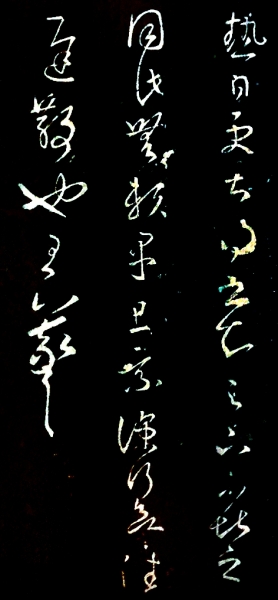 熱日更甚得書知足下不堪之
同此無賴早且乘涼行欲往
遲散也王羲